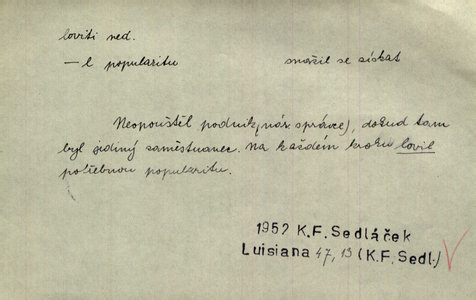 loviti ned.
— l popularitu snažil se získat
Neopouštěl podnik, nár. správce), dokud tam
byl jediný zaměstnanec. Na každém kroku lovil
potřebnou popularitu.
1952 K.F. Sedláček
Luisiana 47, 13 (K.F. Sedl.)